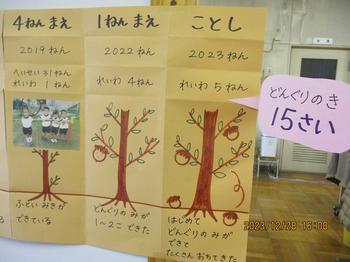 4ねんまえ
2019ねん
へいせい31ねん
れいわ 1ねん
ふとい みきが
できている
1ねんまえ
2022ねん
れいわ 4ねん
どんぐりの みが
1~2こ できた
ことし
2023ねん
れいわ 5ねん
はじめて
どんぐりの みが
できて
たくさん おちてきた
どんぐりのき
15さい
2023/12/28 16:08